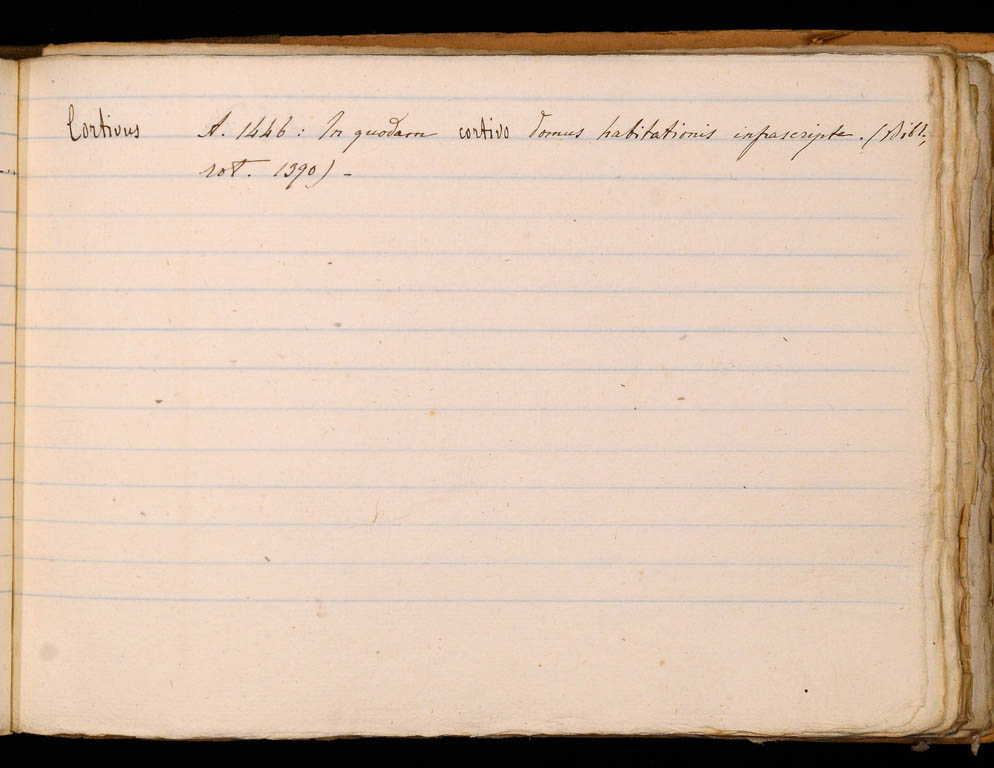 Cortivus A. 1446: In quodam cortivo domus habitationis infrascripte. (Bibl,
rot. 1390) -